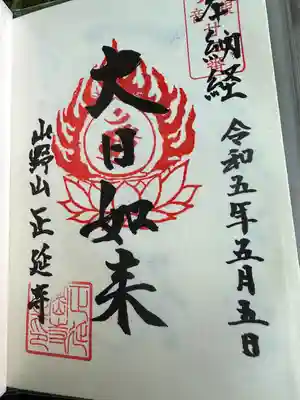 奉納経
令和五年五月五日
大日如来
山野山正延寺